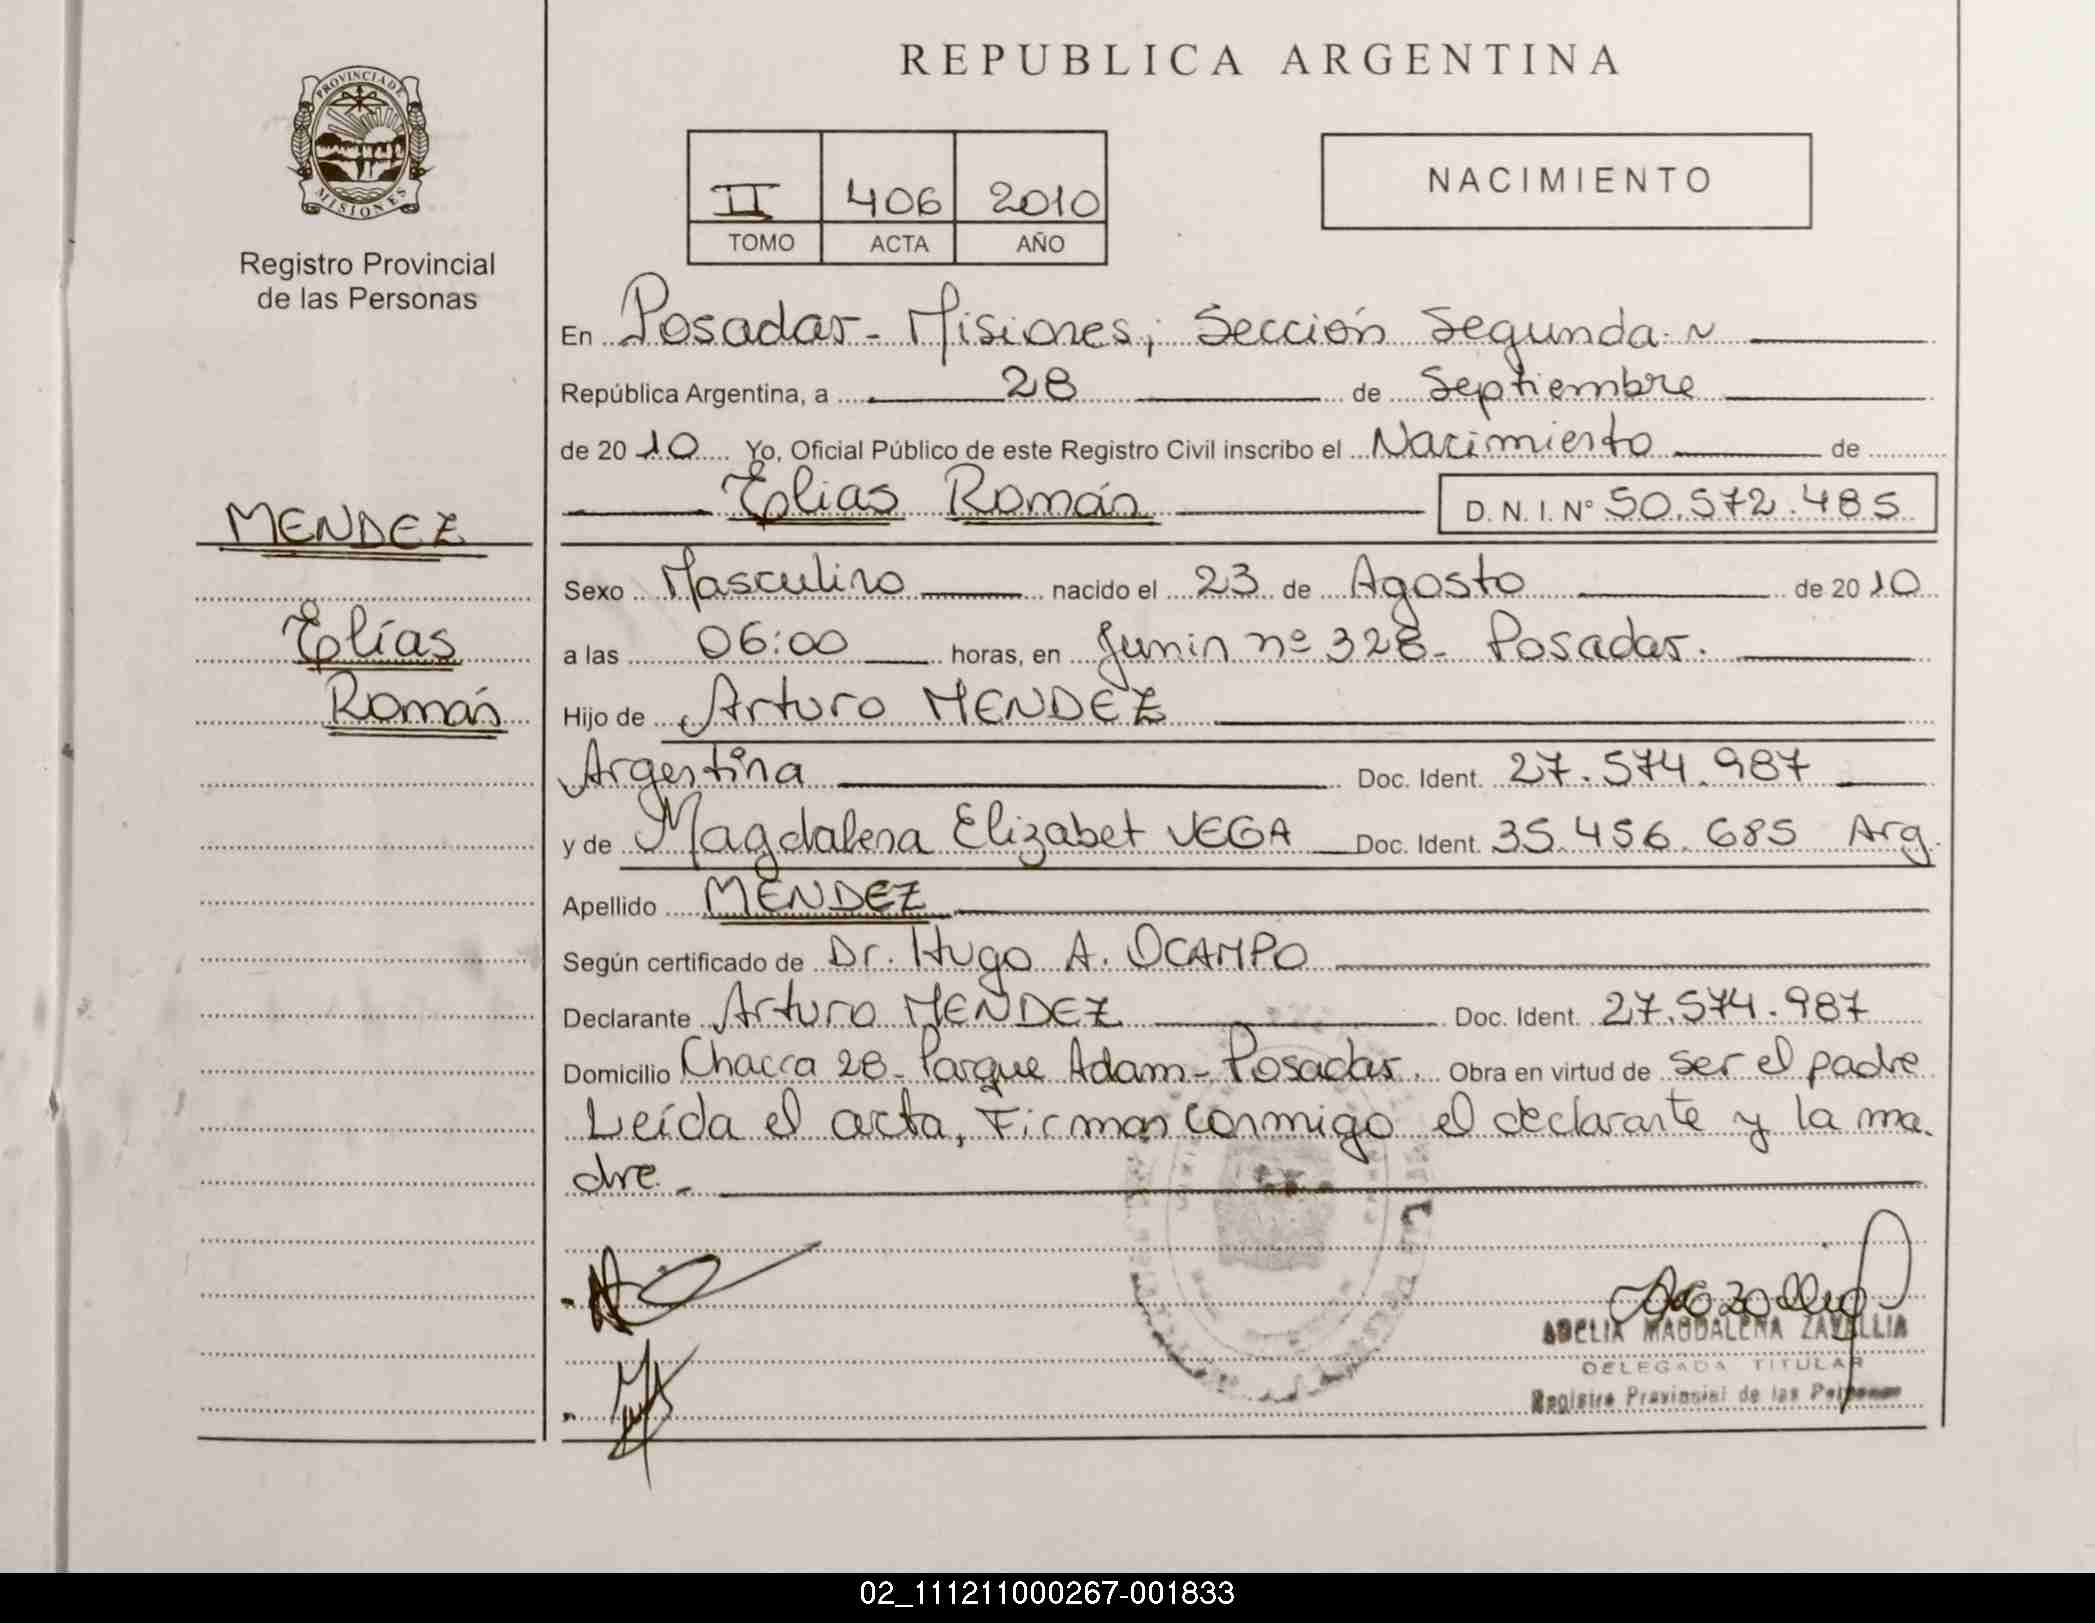 REPUBLICA ARGENTINA
PROVINCIA DE
MISIONES
Registro Provincial
de las Personas
II 406 2010
TOMO ACTA AÑO
NACIMIENTO
MENDEZ
Elías
Román
En Posadas - Misiones, Sección Segunda
República Argentina, a 28 de Septiembre
de 2010 Yo, Oficial Público de este Registro Civil inscribo el Nacimiento de
Elias Román D. N. I. N° 50.572.485
Sexo Masculino nacido el 23 de Agosto de 2010
a las 06:00 horas, en Junin nº 328 - Posadas.
Hijo de Arturo MENDEZ
Argentina Doc. Ident. 27.574.987
y de Magdalena Elizabet VEGA Doc. Ident. 35.456.685 Arg.
Apellido MENDEZ
Según certificado de Dr. Hugo A. OCAMPO
Declarante Arturo MENDEZ Doc. Ident. 27.574.987
Domicilio Chacra 28 - Parque Adam - Posadas. Obra en virtud de ser el padre
Leída el acta, Firman conmigo el declarante y la ma
dre -
ADELIA MAGDALENA ZAVALLIA
DELEGADA TITULAR
Registro Provincial de las Personas
02_111211000267-001833